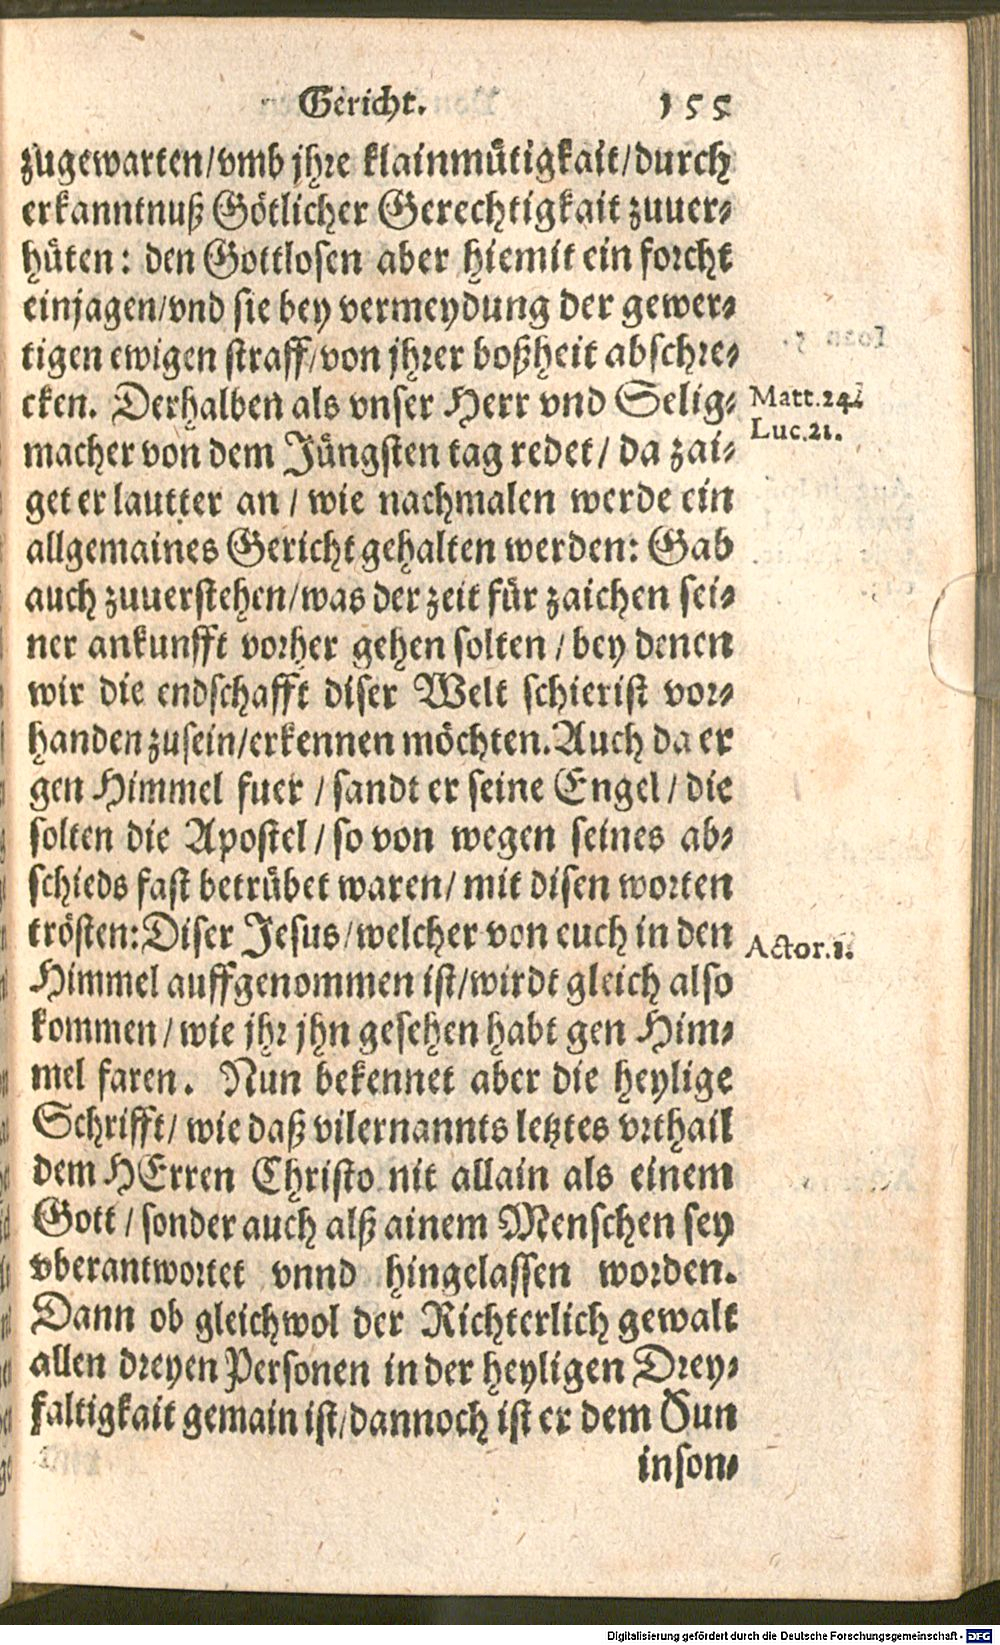 Gericht. 155
zugewarten/vmb jhre klainmütigkait/durch
erkanntnuß Götlicher Gerechtigkait zuuer-
hüten: den Gottlosen aber hiemit ein forcht
einjagen/vnd sie bey vermeydung der gewer-
tigen ewigen straff/von jhrer boßheit abschre-
cken. Derhalben als vnser Herr vnd Selig-
Matt.24.
macher von dem Jüngsten tag redet/ da zai-
Luc.21.
get er lautter an / wie nachmalen werde ein
allgemaines Gericht gehalten werden: Gab
auch zuuerstehen/was der zeit für zaichen sei-
ner ankunfft vorher gehen solten / bey denen
wir die endschafft diser Welt schierist vor-
handen zusein/erkennen möchten. Auch da er
gen Himmel fuer / sandt er seine Engel/ die
solten die Apostel / so von wegen seines ab-
schieds fast betrübet waren/ mit disen worten
trösten: Diser Jesus/welcher von euch in den
Actor.1.
Himmel auffgenommen ist/wirdt gleich also
kommen/ wie jhr jhn gesehen habt gen Him-
mel faren. Nun bekennet aber die heylige
Schrifft/ wie daß vilernannts letztes vrthail
dem HErren Christo nit allain als einem
Gott / sonder auch alß ainem Menschen sey
vberantwortet vnnd hingelassen worden.
Dann ob gleichwol der Richterlich gewalt
allen dreyen Personen in der heyligen Drey-
faltigkait gemain ist/dannoch ist er dem Sun
inson-
Digitalisierung gefördert durch die Deutsche Forschungsgemeinschaft - DFG